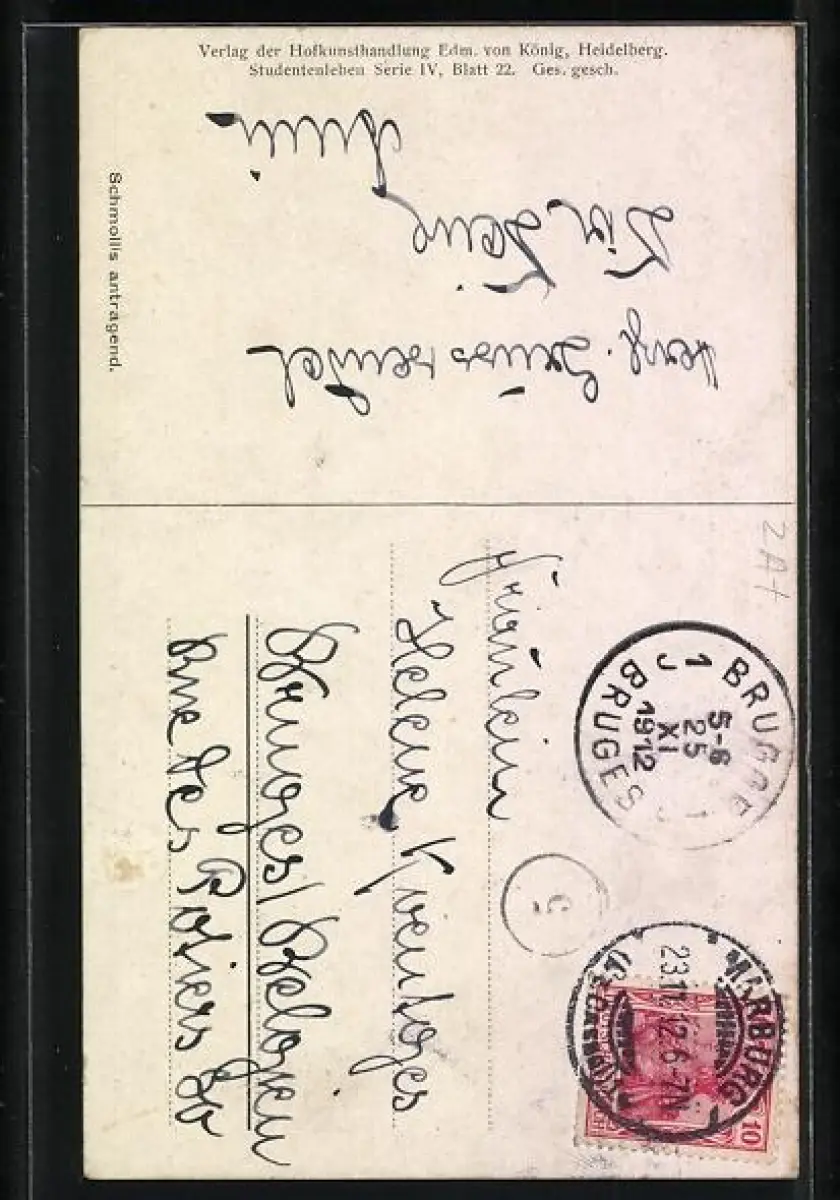 Verlag der Hofkunsthandlung Edm. von König, Heidelberg.
Studentenleben Serie IV, Blatt 22. Ges. gesch.
Schmollis antragend.
Herzl. Grüss sendet
Dir Deine
Anni.
2 A+
BRUGGE 1
5-6
25
XI
1912
BRUGES
MARBURG
23.11.12.6-7N
10
Fräulein
Helene
Bruges / Belgien
Rue des Potiers